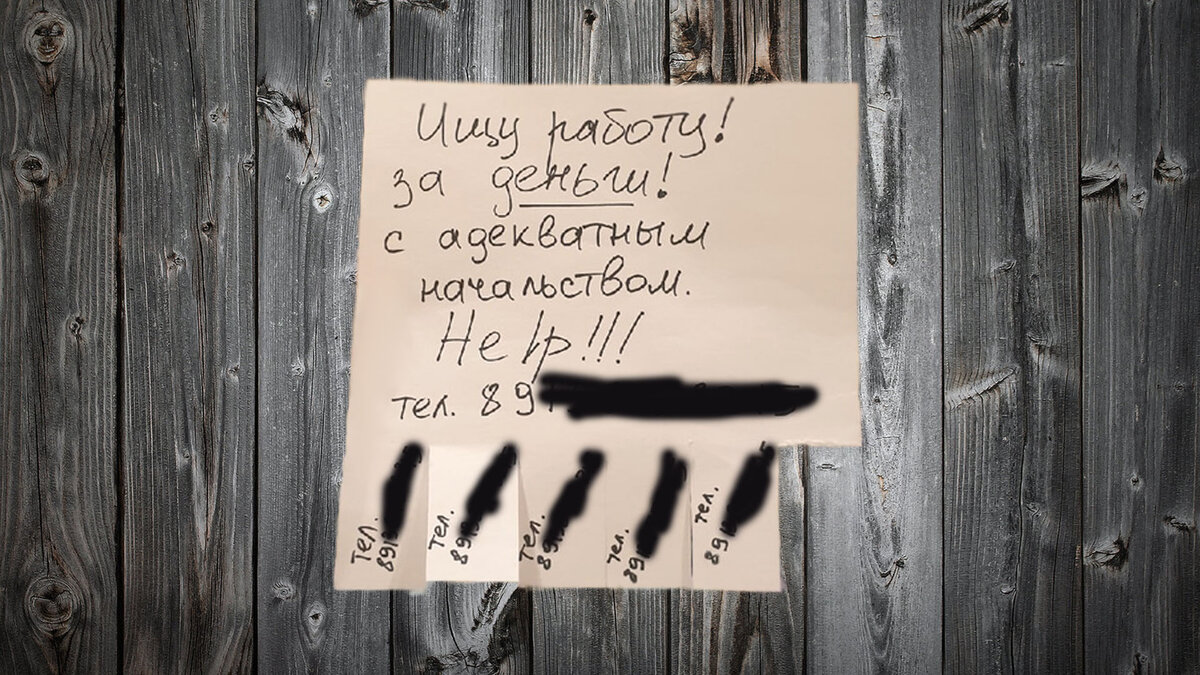 Ищу работу!
за деньги!
с адекватным
начальством.
Не /р!!!
тел. 89
тел.
89
тел.
89
тел.
89
тел.
89
тел.
89